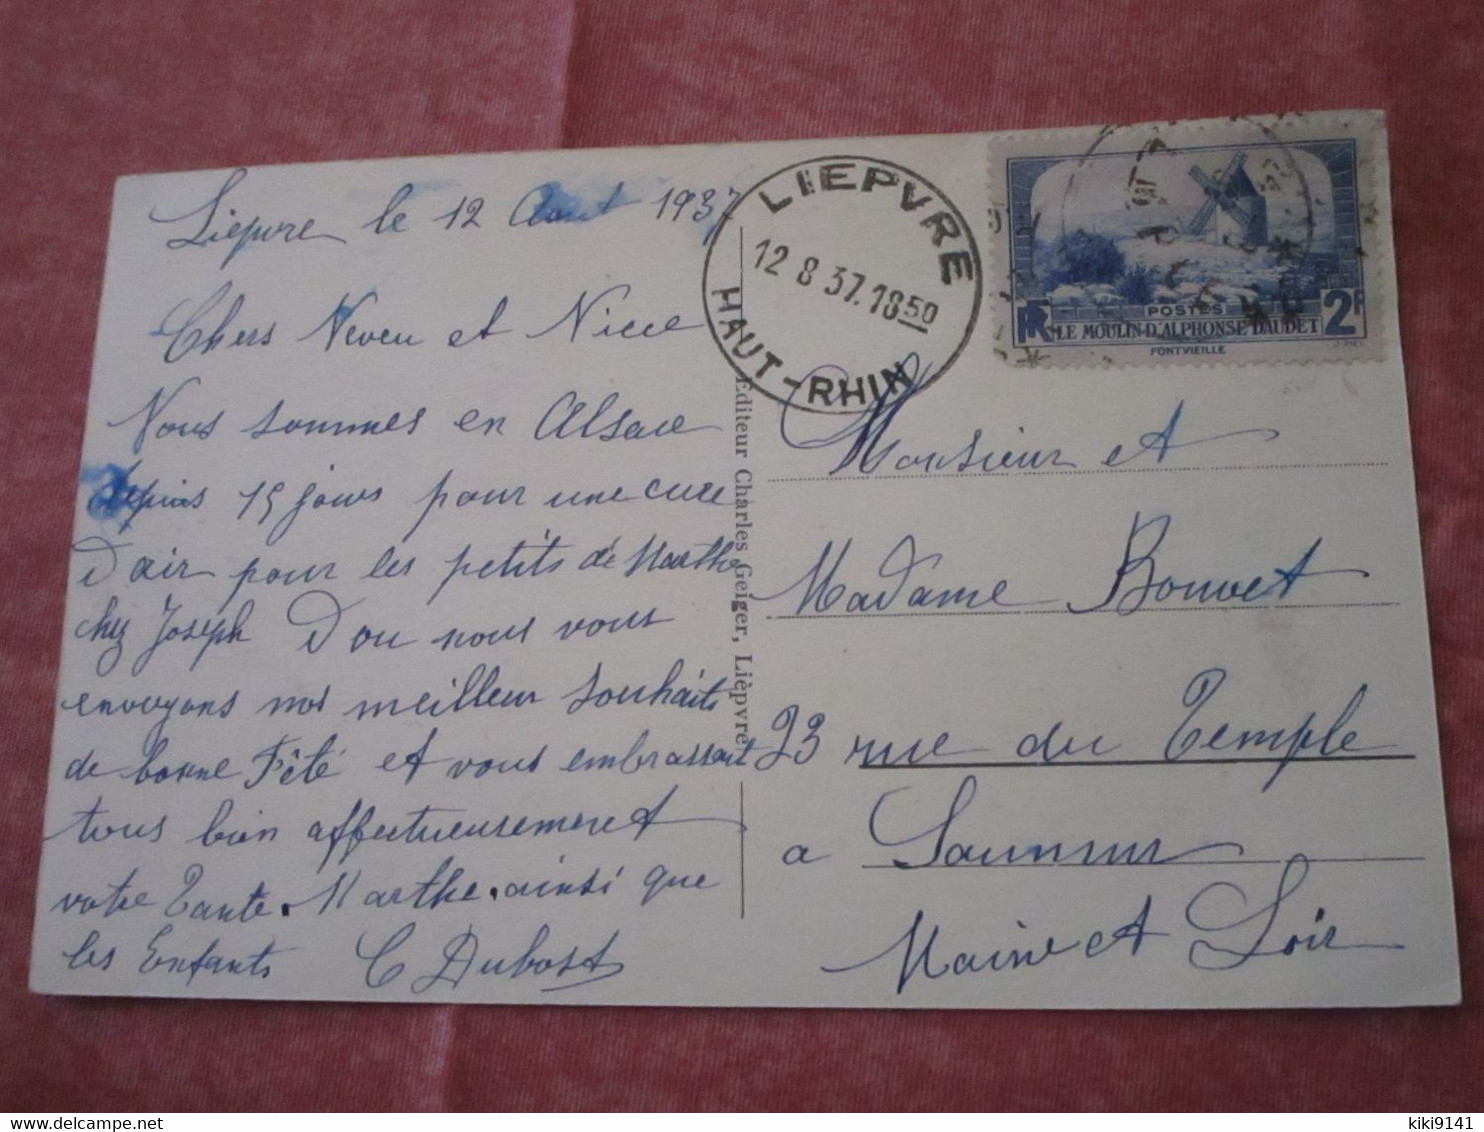 Liepvre le 12 Aout 1937
Chers Neveu et Niece
Nous sommes en Alsace
depuis 15 jours pour une cure
D'air pour les petits de Marthe
chez Joseph D ou nous vous
envoyons nos meilleur Souhaits
de bonne Fêté et vous embrassent
tous bien affectueusement
votre Tante. Marthe. ainsi que
les Enfants C Dubost
LIEPVRE
12 8 37.18 50
HAUT-RHIN
POSTES
RF LE MOULIN D'ALPHONSE DAUDET 2F
FONTVIEILLE
Editeur Charles Geiger, Lièpvre
Monsieur et
Madame Bouvet
23 rue du Temple
a Saumur
Maine et Loir
kiki9141